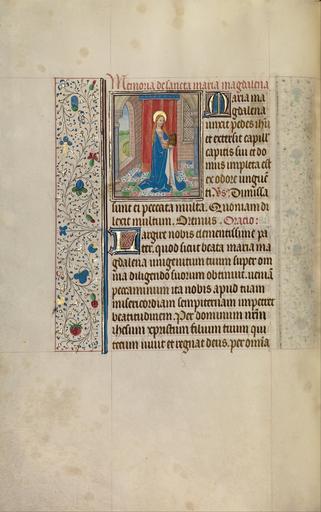 Memoria de sancta maria magdalena
Maria ma
gdalena
unxit pedes ihu
et extersit capill
capitis sui et do
mus impleta est
ex odore ungue
ti. Vs. Dimissa
sunt ei peccata multa. Quoniam di
lexit multum. Oremus. Oratio:
Largire nobis clementissime pa
ter. quod sicut beata maria ma
gdalena unigenitum tuum super om
nia diligendo suorum obtinuit veniam
peccaminum ita nobis apud tuam
misericordiam sempiternam impetret
beatitudinem. Per dominum nrm
ihesum xpristum filium tuum qui
tecum vivit et regnat deus. per omnia